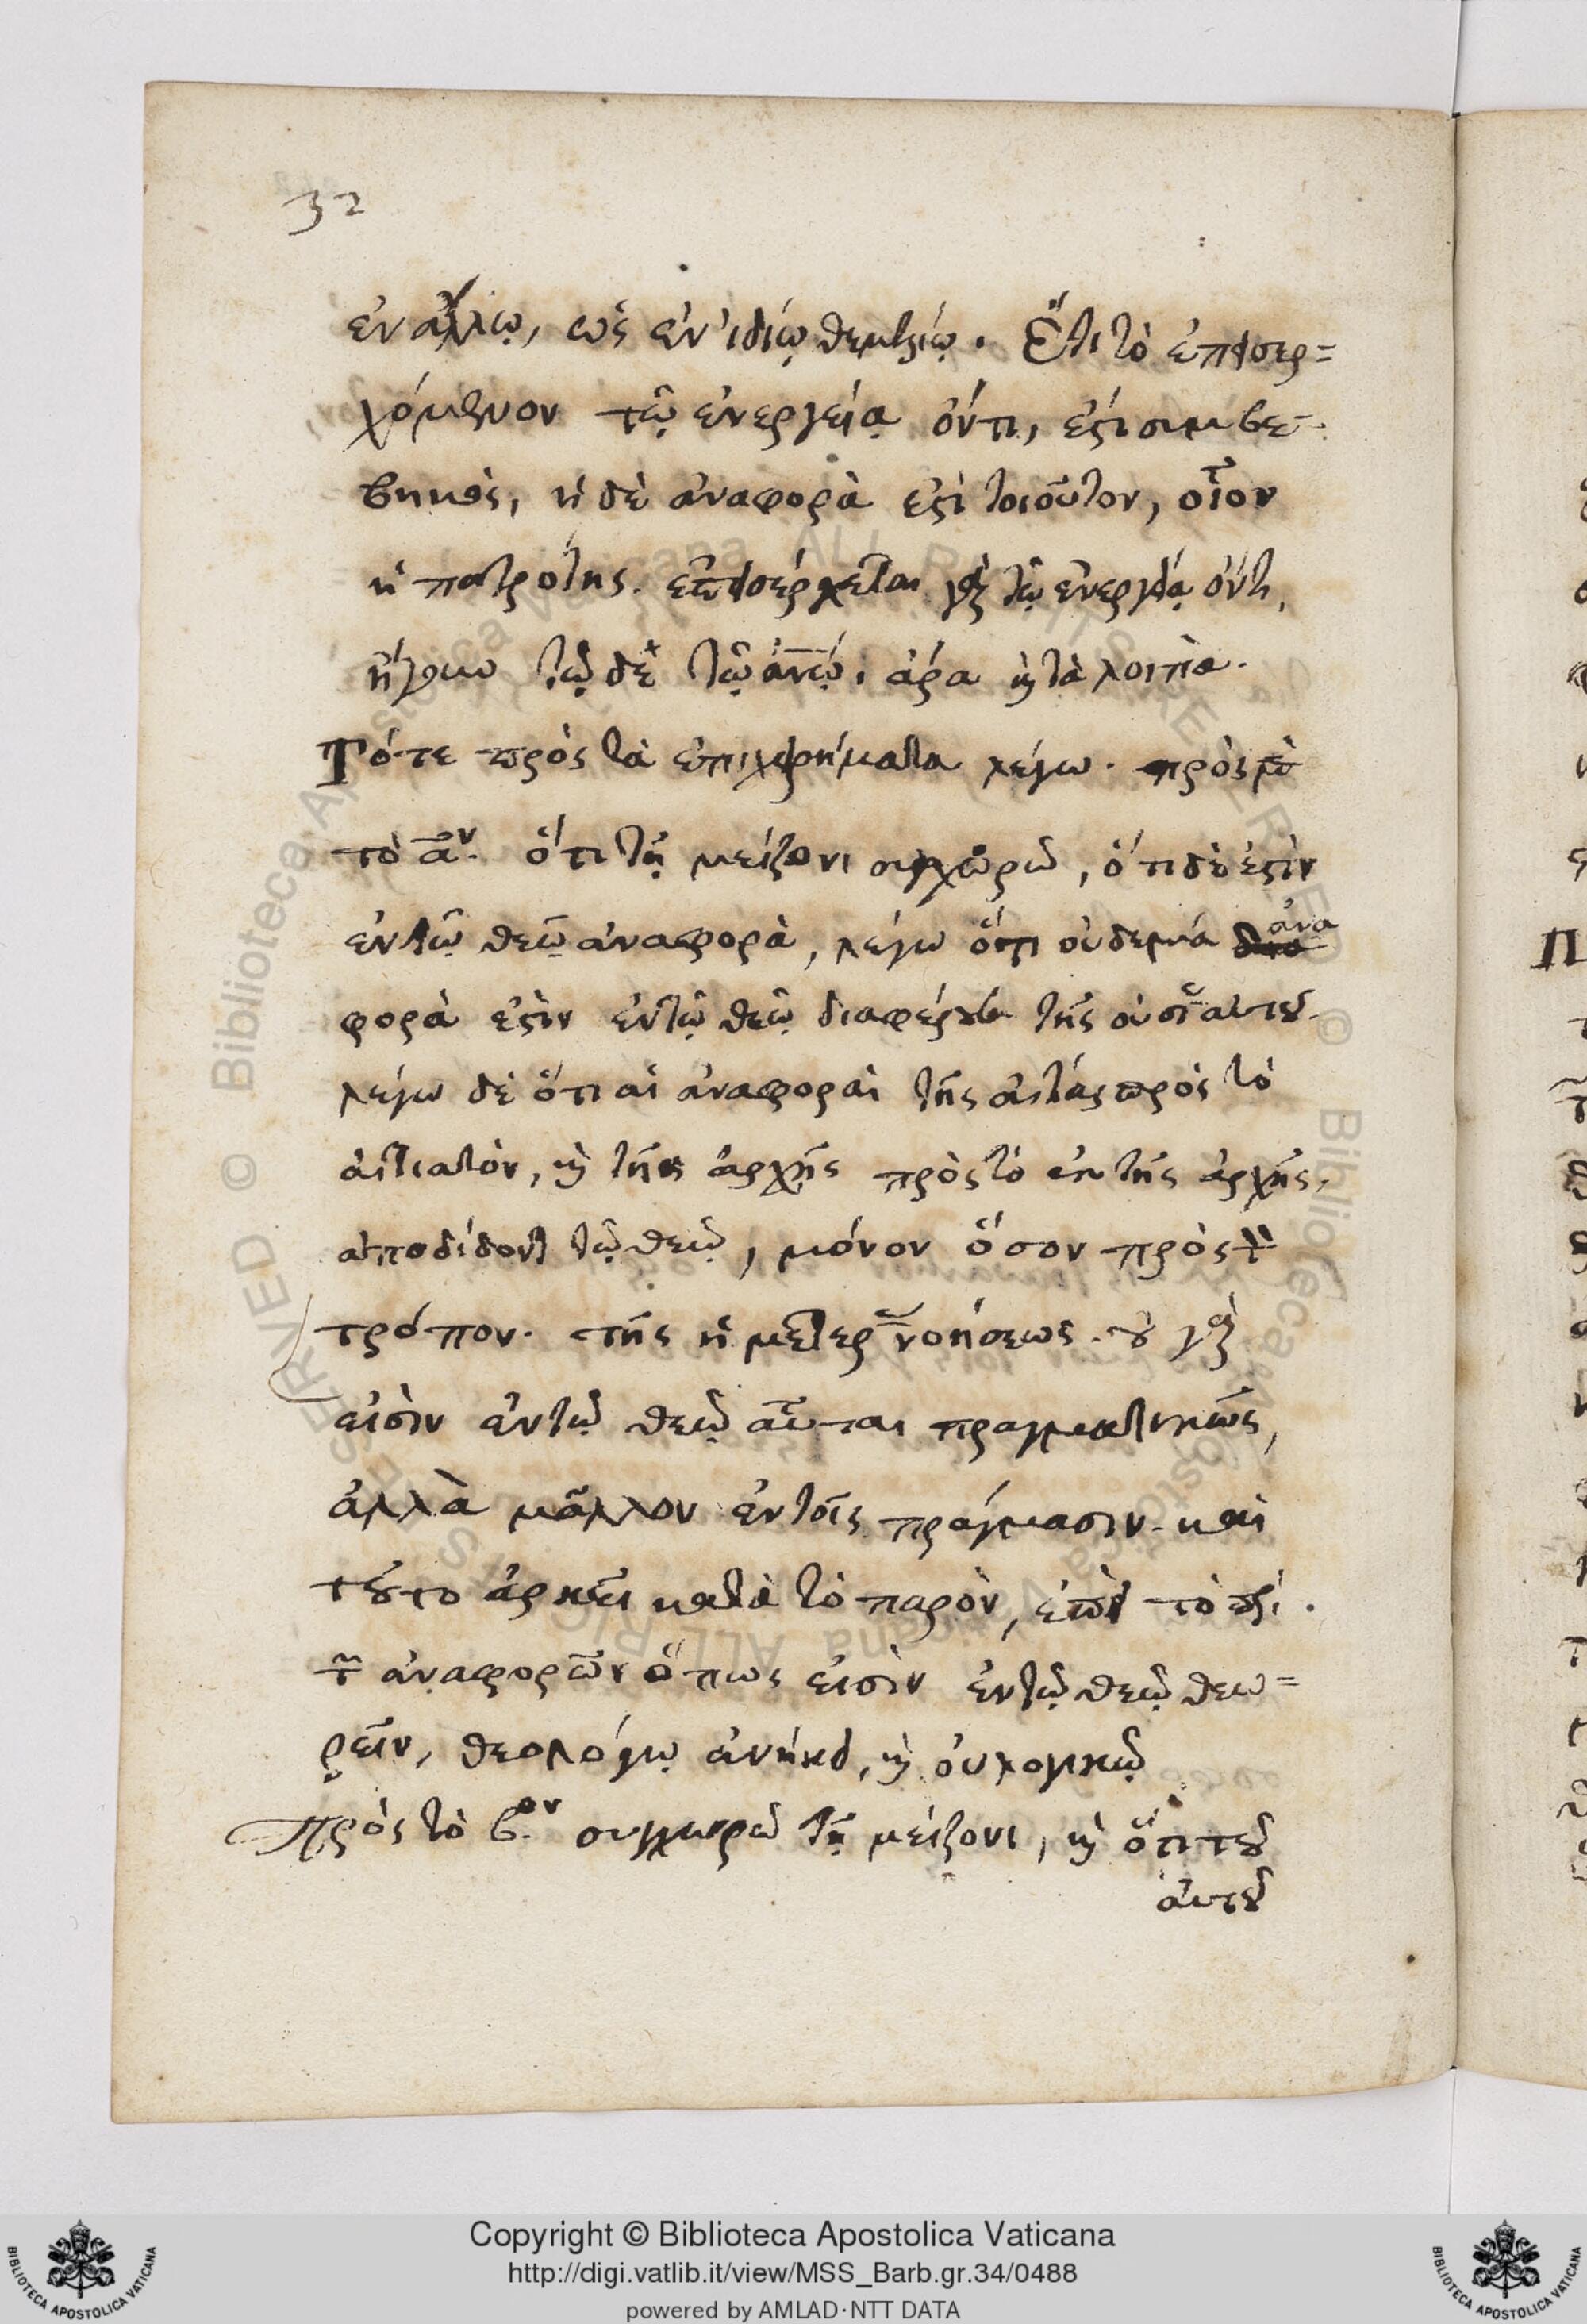 32
ἐν ἄλλῳ, ὡς ἐν ἰδίῳ θεμελίῳ. Ἔτι τὸ ἐπεισερ=
χόμενον τῷ ἐνεργείᾳ ὄντι, ἐστὶ συμβε-
βηκὸς, ἡ δὲ ἀναφορὰ ἐστὶ τοιοῦτον, οἷον
ἡ πατρότης. ἐπεισέρχεται γὰρ τῷ ἐνεργείᾳ ὄντι,
ἤγουν τῷδε τῷ ἀνῷ. ἄρα καὶ τὰ λοιπὰ.
Τό-τε πρὸς τὰ ἐπιχειρήματα λέγω. πρὸς μὲν
τὸ αον. ὅτι τῇ μείζονι συγχωρῶ, ὅτι δὲ ἐστὶν
ἐν τῷ θεῷ ἀναφορὰ, λέγω ὅτι οὐδεμία ἀνα
φορὰ ἐστὶν ἐν τῷ θεῷ διαφέρουσα τῆς οὐσίας αὐτοῦ.
λέγω δὲ ὅτι αἱ ἀναφοραὶ τῆς αἰτίας πρὸς τὸ
αἰτιατὸν, καὶ τῆς ἀρχῆς πρὸς τὸ ἐκ τῆς ἀρχῆς,
ἀποδίδονται τῷ θεῷ, μόνον ὅσον πρὸς τὸν
τρόπον. τῆς ἡμετέρας νοήσεως. οὐ γὰρ
εἰσὶν ἐν τῷ θεῷ αὗται πραγματικῶς,
ἀλλὰ μᾶλλον ἐν τοῖς πράγμασιν. καὶ
τοῦτο ἀρκεῖ κατὰ τὸ παρὸν, ἐπεὶ τὸ περὶ
τῶν ἀναφορῶν ὅπως εἰσὶν ἐν τῷ θεῷ θεω=
ρεῖν, θεολόγῳ ἀνήκει, καὶ οὐ λογικῷ
πρὸς τὸ β.ον συγχωρῶ τῇ μείζονι, καὶ ὅτι τοῦ
αὐτοῦ
Copyright © Biblioteca Apostolica Vaticana
http://digi.vatlib.it/view/MSS_Barb.gr.34/0488
powered by AMLAD·NTT DATA